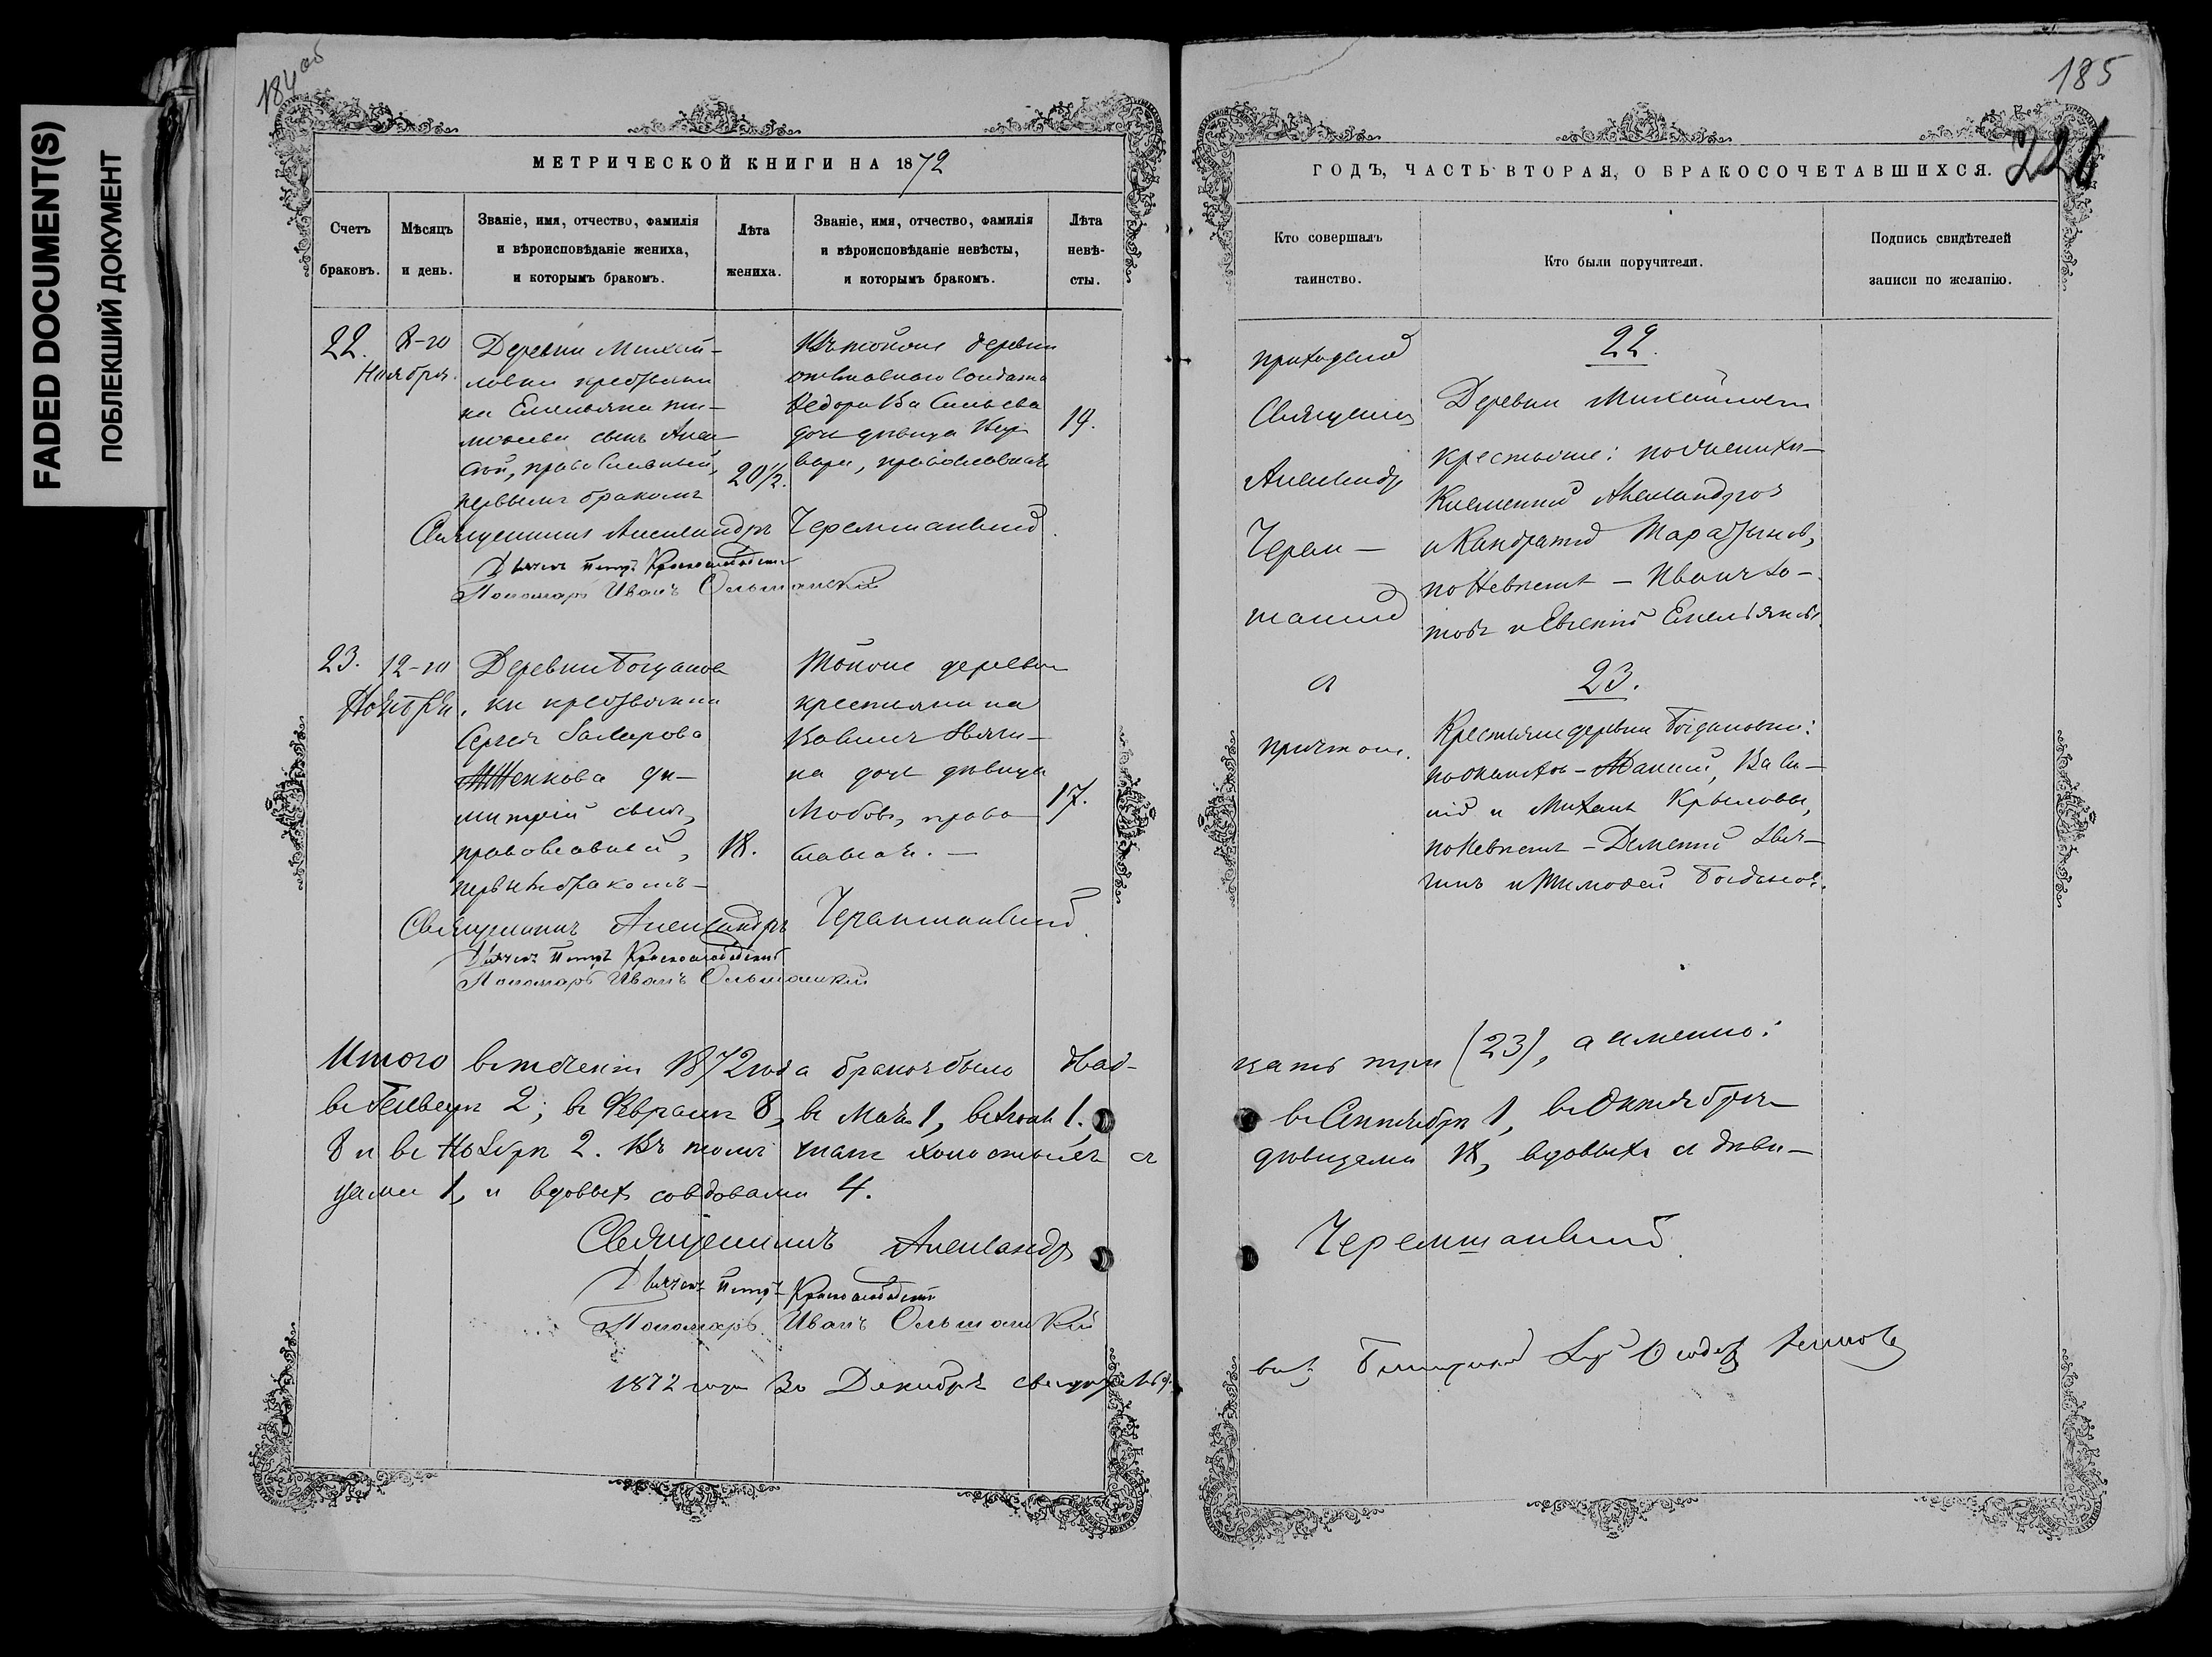 FADED DOCUMENT(S)
ПОБЛЕКШИЙ ДОКУМЕНТ
184 об
МЕТРИЧЕСКОЙ КНИГИ НА 1872
Счетъ браковъ.
Мѣсяцъ и день.
Званіе, имя, отчество, фамилія
и вѣроисповѣданіе жениха,
и которымъ бракомъ.
Лѣта жениха.
Званіе, имя, отчество, фамилія
и вѣроисповѣданіе невѣсты,
и которымъ бракомъ.
Лѣта невѣ-
сты.
22.
8-го
Ноября.
Деревни Михай-
ловки крестьяни
на Емельяна Ти-
моѳеева сынъ Алек
сѣй, православный,
первымъ бракомъ
20 1/2.
Тойже деревни
отставнаго солдата
Ѳедора Васильева
дочь дѣвица
православная
19.
Священникъ Александръ Черемшанскій.
Дьячекъ Петръ Краснослободскій
Пономарь Иванъ Ольшанскій
23.
12-го
Ноября.
Деревни Богданов
ки крестьянина
Сергѣя
Ди-
митрій сынъ,
православный,
первымъ бракомъ
18.
Тойже деревни
крестьянина
на дочь дѣвица
Любовь, право
славная. —
17.
Священникъ Александръ Черемшанскій
Дьячекъ Петръ Краснослободскій
Пономарь Иванъ Ольшанскій
Итого въ теченіи 1872 года браковъ было двад-
въ Генварѣ 2; въ Февралѣ 8, въ Маѣ 1, въ Іюлѣ 1,
8 и въ Ноябрѣ 2. Въ томъ числѣ холостыхъ съ
цами 1, и вдовыхъ со вдовами 4.
Священникъ Александръ
Дьячекъ Петръ Краснослободскій
Пономарь Иванъ Ольшанскій
1872 года Декабря
185
226
ГОДЪ, ЧАСТЬ ВТОРАЯ, О БРАКОСОЧЕТАВШИХСЯ.
Кто совершалъ
таинство.
Кто были поручители.
Подпись свидѣтелей
записи по желанію.
приходскій
Священникъ
Александръ
Черем—
шанскій
съ
причтомъ.
22.
Деревни Михайловки
крестьяне: по женихѣ—
Климентій Александровъ
и Кондратій
по невѣстѣ — Иванъ
и Евгеній Емельяновъ.
23.
Крестьяне деревни Богдановки:
по женихѣ — Васи—
лій и Михаилъ Крыловы,
по невѣстѣ — Дементій
и Тимоѳей Богдановъ.
цать три (23), а именно:
въ Сентябрѣ 1, въ Октябрѣ
дѣвицами 18, вдовыхъ съ дѣви—
Черемшанскій